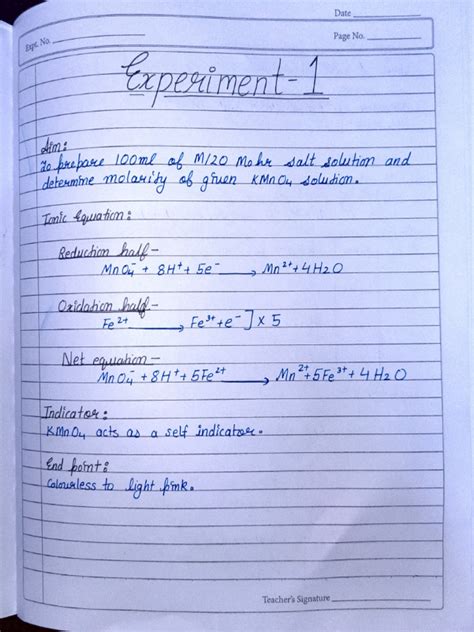 Date
Expt. No.
Page No.
Experiment-1
Aim:
To prepare 100ml of M/20 Mohr salt solution and
determine molarity of given KMnO4 solution.
Ionic Equation:
Reduction half-
MnO4⁻ + 8H⁺ + 5e⁻ → Mn²⁺ + 4H2O
Oxidation half-
Fe²⁺ → Fe³⁺ + e⁻ ] x 5
Net equation-
MnO4⁻ + 8H⁺ + 5Fe²⁺ → Mn²⁺ + 5Fe³⁺ + 4H2O
Indicator:
KMnO4 acts as a self indicator.
End point:
Colourless to light pink.
Teacher's Signature